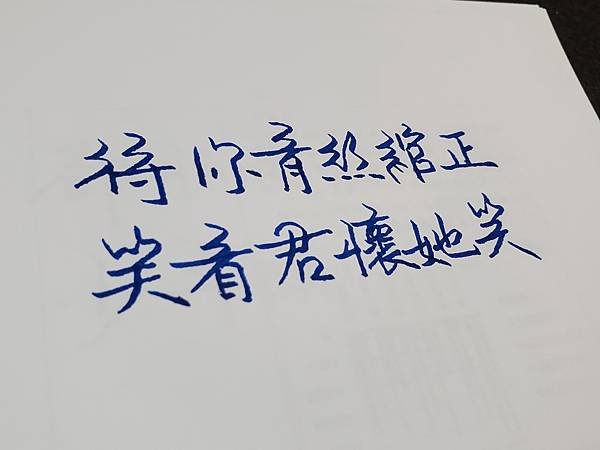 待你青絲綰正
笑看君懷她笑